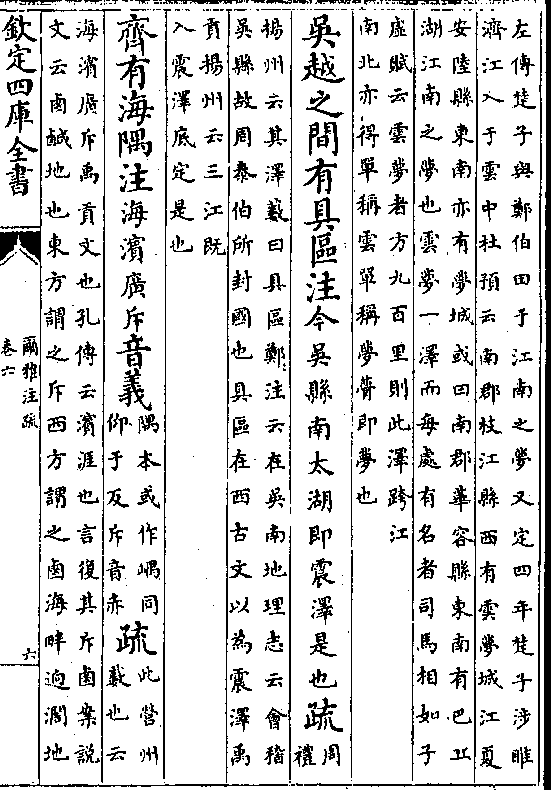 左傳楚子與鄭伯田于江南之夢又定四年楚子涉睢
濟江入于雲中杜預云南郡枝江縣西有雲夢城江夏
安陸縣東南亦有夢城或曰南郡華容縣東南有巴丘
湖江南之夢也雲夢一澤而每處有名者司馬相如子
虛賦云雲夢者方九百里則此澤跨江
南北亦得單稱雲單稱夢瞢即夢也
吳越之間有具區注今吳縣南太湖即震澤是也疏周禮
揚州云其澤藪曰具區鄭注云在吳南地理志云會稽
吳縣故周泰伯所封國也具區在西古文以為震澤禹
貢揚州云三江既
入震澤底定是也
齊有海隅注海濱廣斥音義隅本或作嵎同仰于反斥音赤疏此營州藪也云
海濱廣斥禹貢文也孔傳云濱涯也言復其斥鹵案說
文云鹵鹹地也東方謂之斥西方謂之鹵海畔迥濶地
欽定四庫全書
爾雅注疏
卷六
六